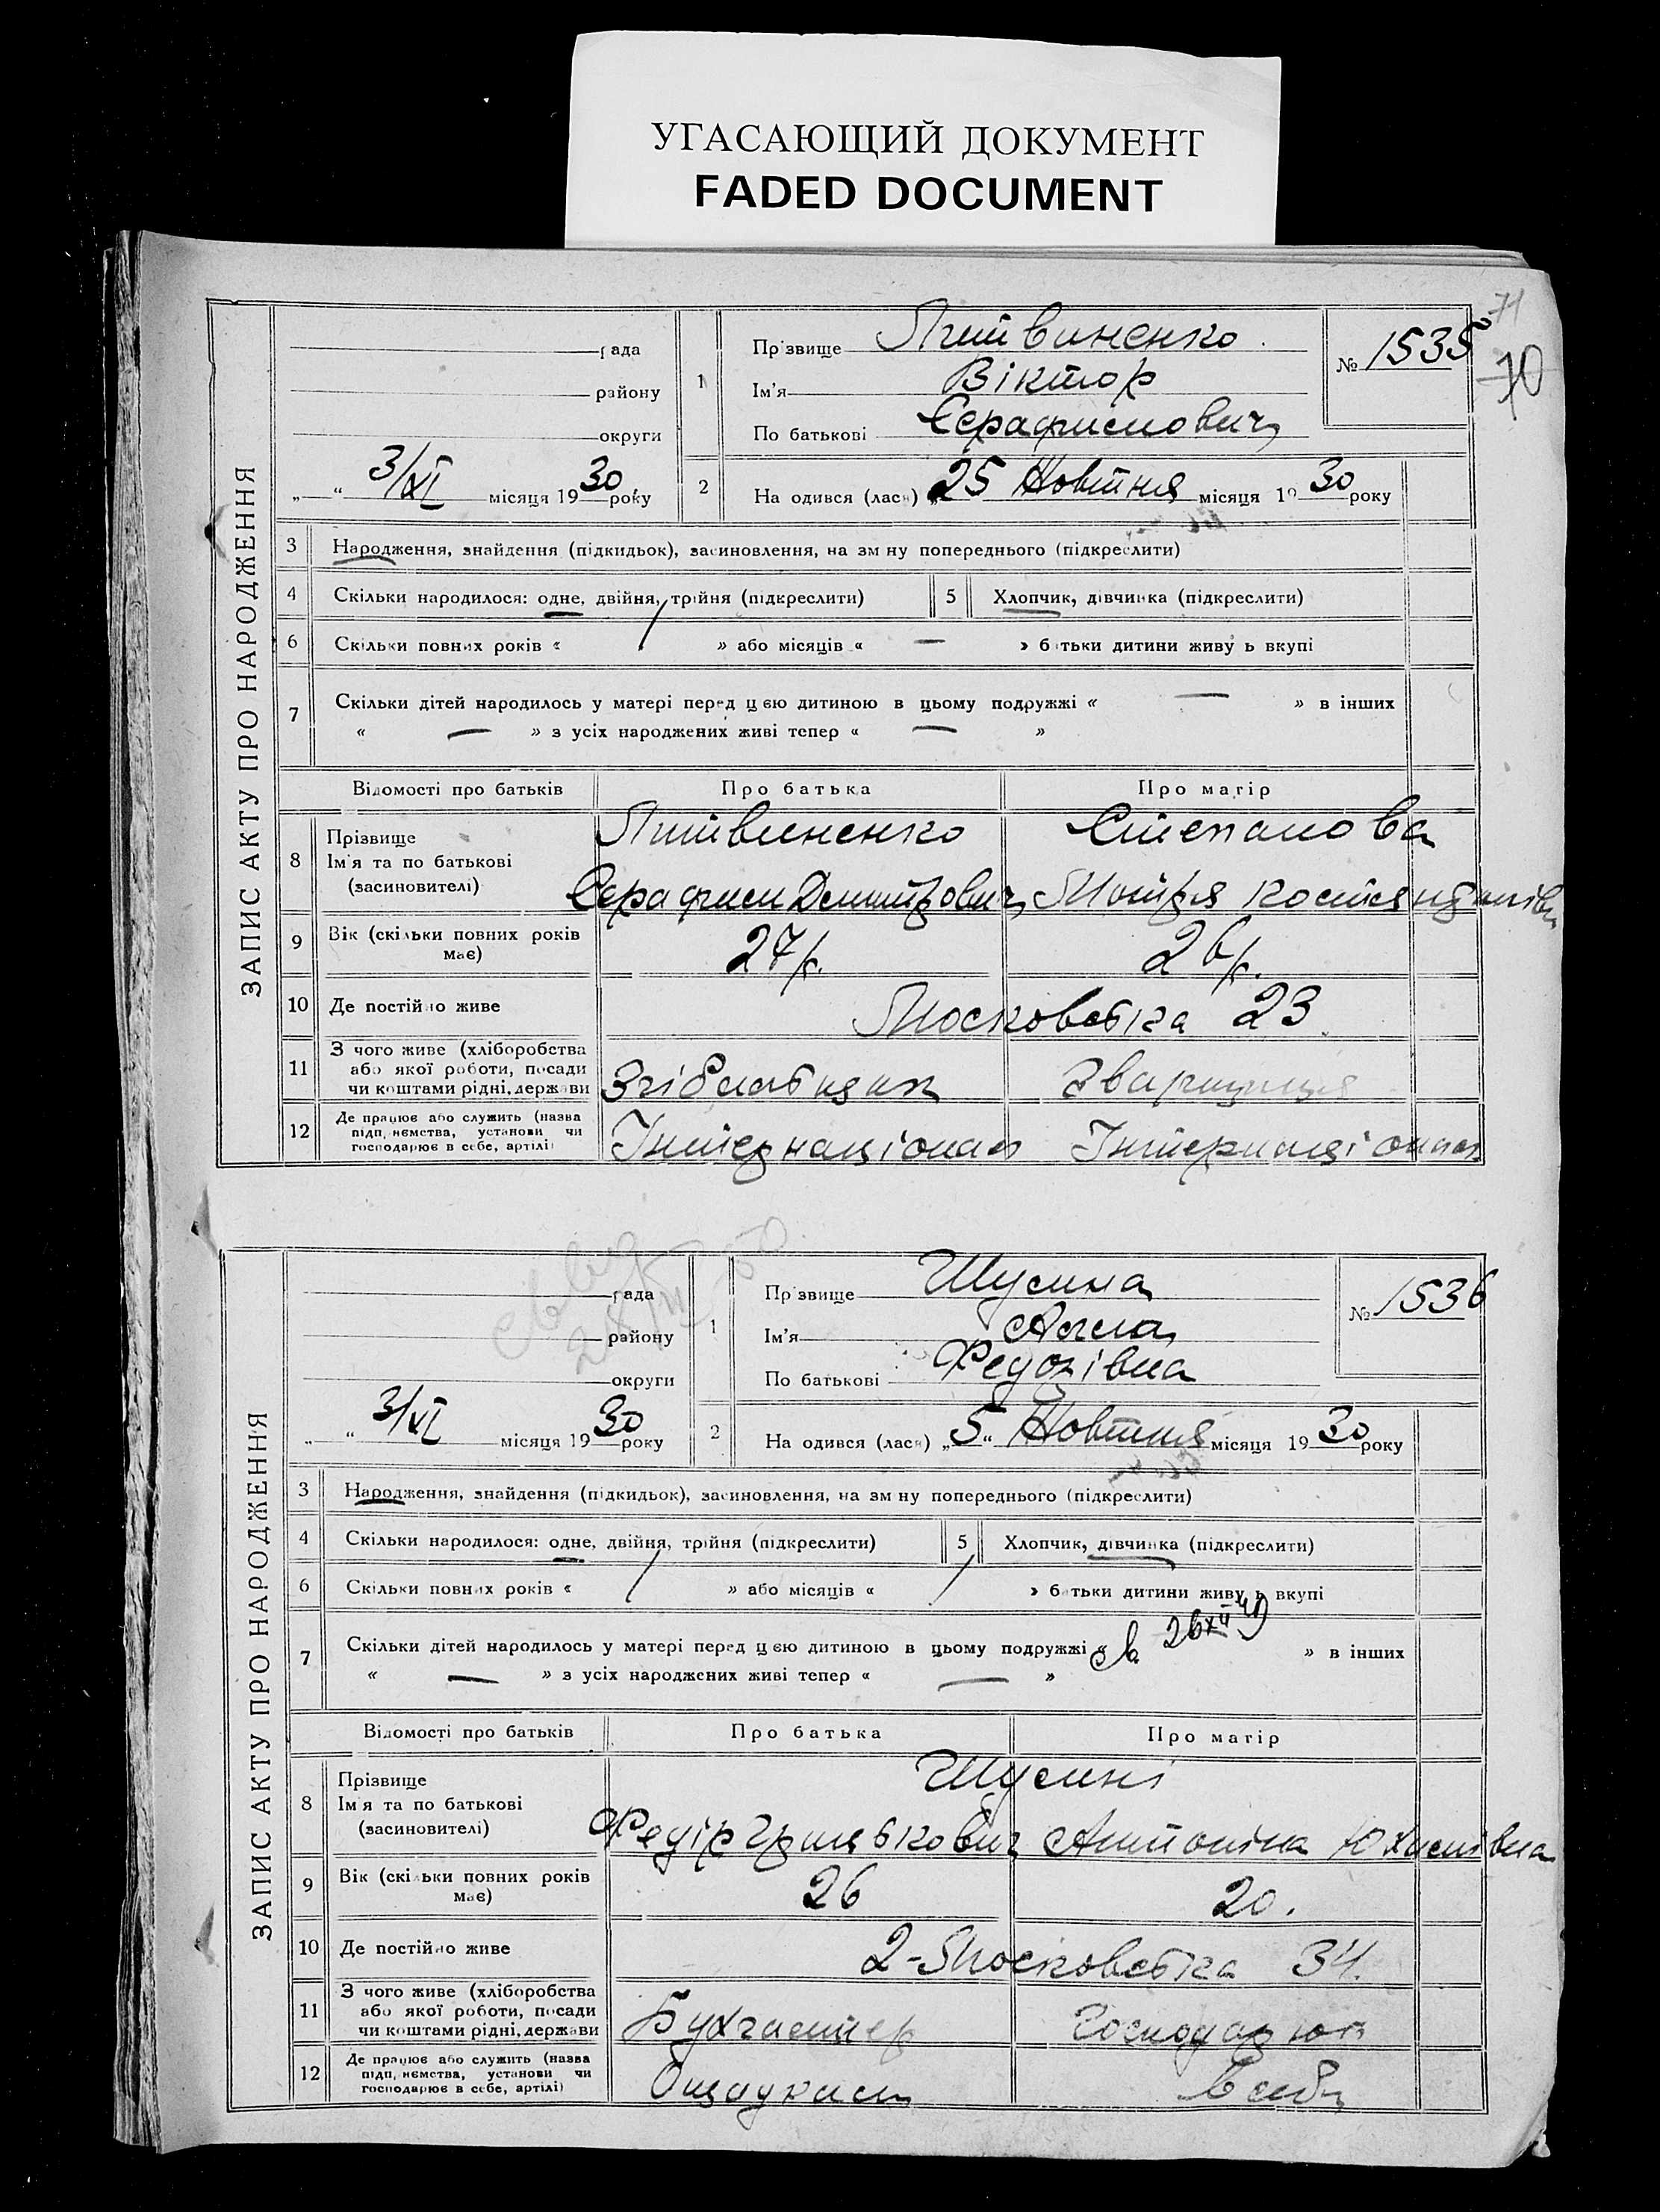 УГАСАЮЩИЙ ДОКУМЕНТ
FADED DOCUMENT
71
70
ЗАПИС АКТУ ПРО НАРОДЖЕННЯ
рада
району
округи
„ “ 3/XI місяця 1930 року
1 Прізвище Литвиненко
Ім'я Віктор
По батькові Серафимович
№ 1535
2 На одився (лася) „25 Жовтня місяця 1930 року
3 Народження, знайдення (підкидьок), засиновлення, на зм ну попереднього (підкреслити)
4 Скільки народилося: одне, двійня, трійня (підкреслити) 5 Хлопчик, дівчинка (підкреслити)
6 Скільки повних років « / » або місяців « — » б тьки дитини живу ь вкупі
7 Скільки дітей народилось у матері перед ц ею дитиною в цьому подружжі « — » в інших
« — » з усіх народжених живі тепер « — »
Відомості про батьків Про батька Про матір
8 Прізвище Литвиненко Степанова
Ім'я та по батькові
(засиновителі) Серафим Дмитрович Мотря Костянтинівн
9 Вік (скільки повних років має) 27 р. 26 р.
10 Де постійно живе Московська 23
11 З чого живе (хліборобства
або якої роботи, посади
чи коштами рідні, держави
12 Де працює або служить (назва
підп, немства, установи чи
господарює в себе, артілі) Інтернаціонал Інтернаціонал
ЗАПИС АКТУ ПРО НАРОДЖЕННЯ
рада
району
округи
„ “ 3/XI місяця 1930 року
1 Пр звище Шусина
Ім'я
По батькові Федорівна
№ 1536
2 На одився (лася) „5“ Жовтня місяця 1930 року
3 Народження, знайдення (підкидьок), засиновлення, на зм ну попереднього (підкреслити)
4 Скільки народилося: одне, двійня, трійня (підкреслити) 5 Хлопчик, дівчинка (підкреслити)
6 Скільки повних років « / » або місяців « / » б тьки дитини живу ь вкупі
7 Скільки дітей народилось у матері перед ц ею дитиною в цьому подружжі « » в інших
« — » з усіх народжених живі тепер « — »
Відомості про батьків Про батька Про матір
8 Прізвище Шусині
Ім'я та по батькові
(засиновителі) Федір Антоніна Юхимівна
9 Вік (скільки повних років має) 26 20.
10 Де постійно живе 2-Московська 34.
11 З чого живе (хліборобства
або якої роботи, посади
чи коштами рідні, держави Бухгалтер
12 Де працює або служить (назва
підп, немства, установи чи
господарює в себе, артілі) Ощадкаса